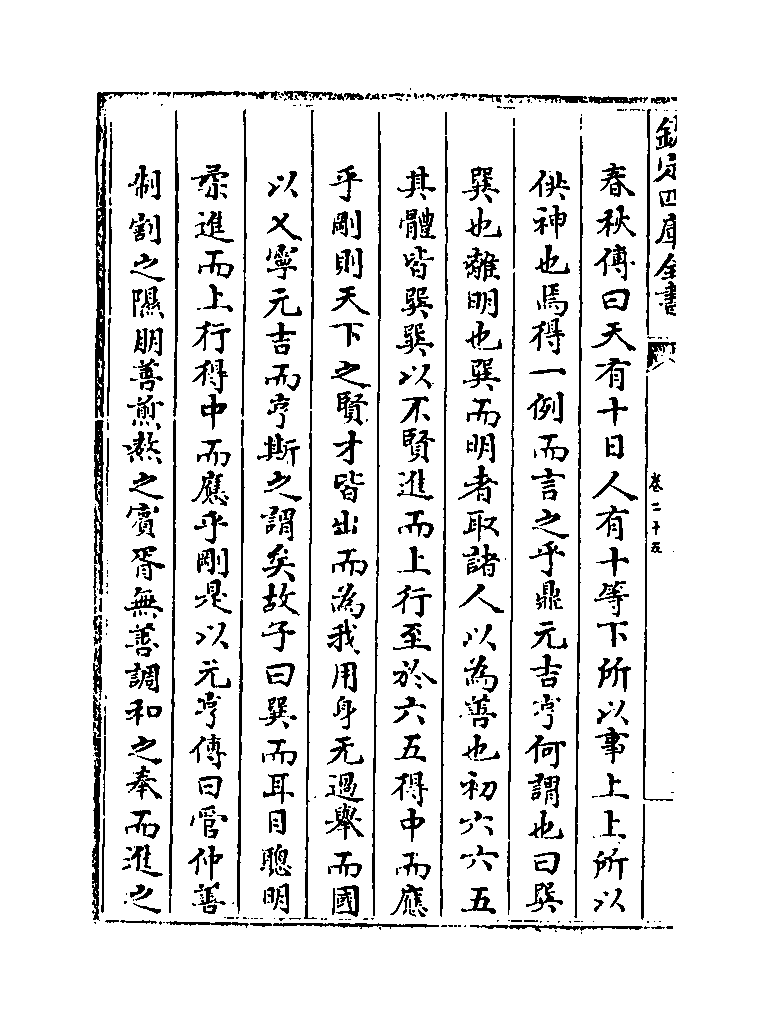 欽定四庫全書
卷二十五
春秋傳曰天有十日人有十等下所以事上上所以
供神也焉得一例而言之乎鼎元吉亨何謂也曰巽
巽也離明也巽而明者取諸人以為善也初六六五
其體皆巽巽以不賢進而上行至於六五得中而應
乎剛則天下之賢才皆出而為我用身无過舉而國
以乂寧元吉而亨斯之謂矣故子曰巽而耳目聰明
柔進而上行得中而應乎剛是以元亨傳曰管仲善
制割之隰朋善煎熬之賓胥無善調和之奉而進之